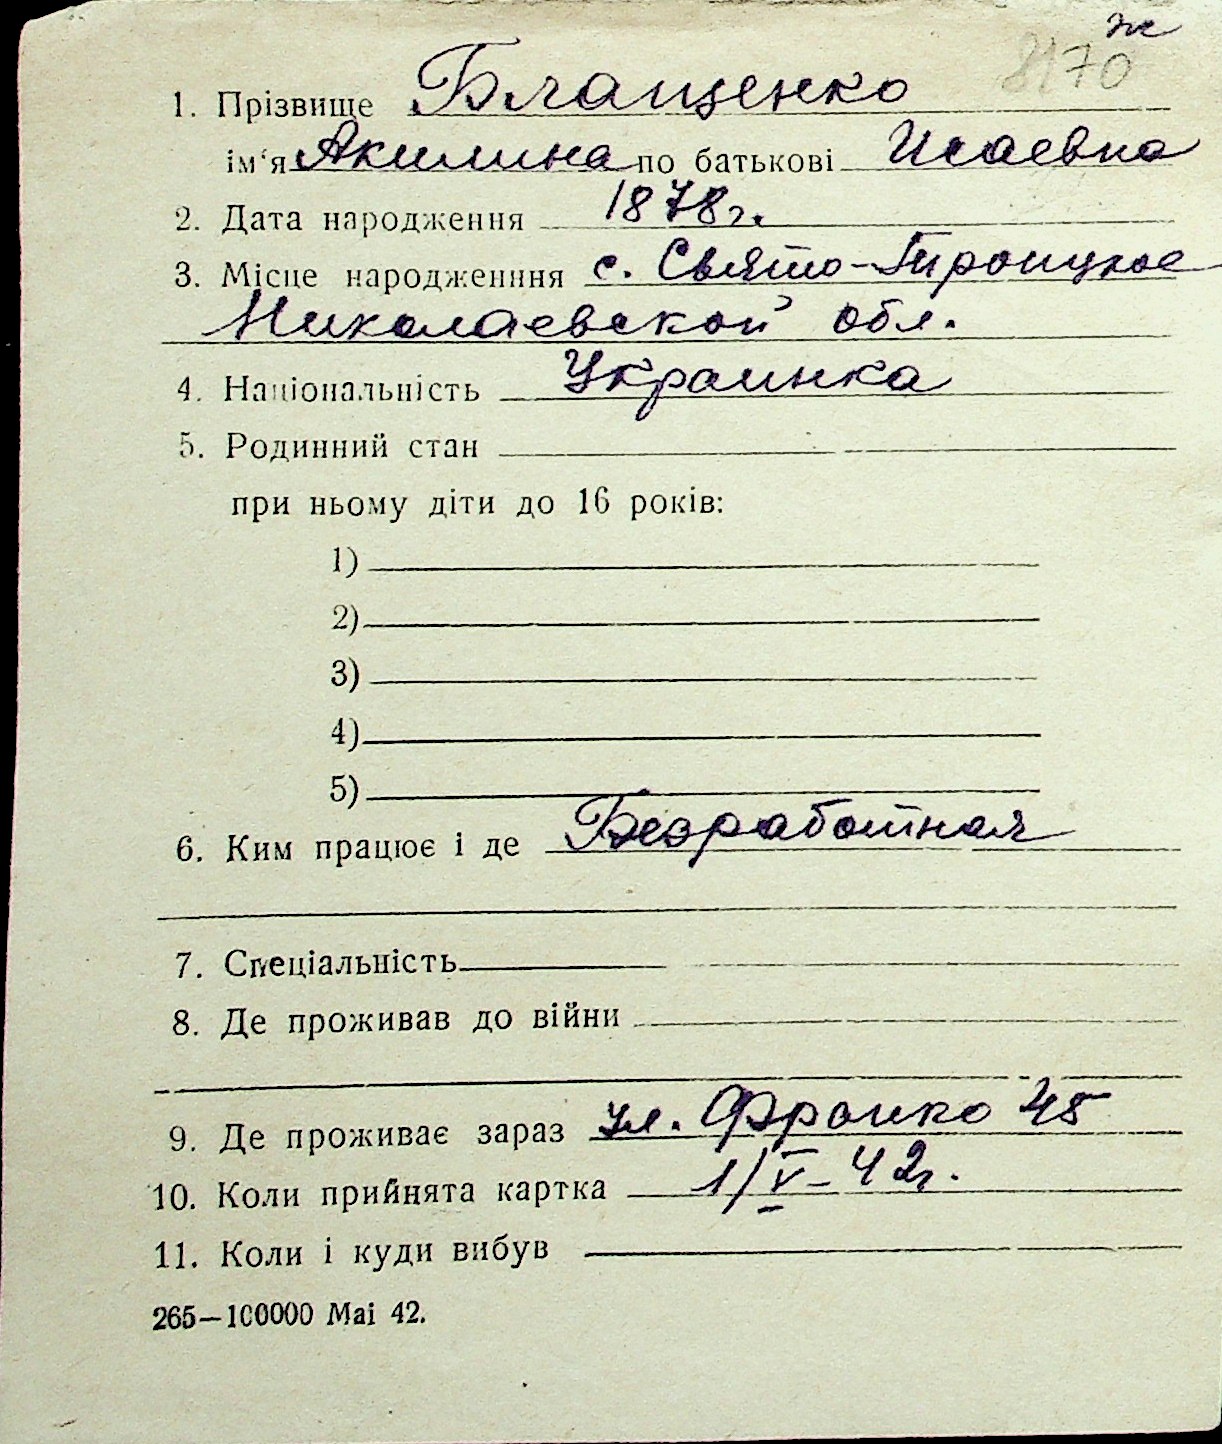 ж
8170
1. Прізвище Блащенко
ім'я Акилина по батькові Исаевна
2. Дата народження 1878г.
3. Місце народженння с. Свято-Троицкое
Николаевской обл.
4. Національність Украинка
5. Родинний стан
при ньому діти до 16 років:
1)
2)
3)
4)
5)
6. Ким працює і де Безработная
7. Спеціальність
8. Де проживав до війни
9. Де проживає зараз ул. Франко 45
10. Коли прийнята картка 1/V-42г.
11. Коли і куди вибув
265—100000 Mai 42.